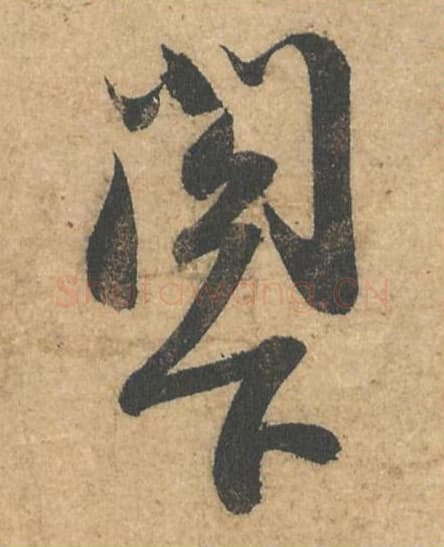 閣下
Shufawang.CN